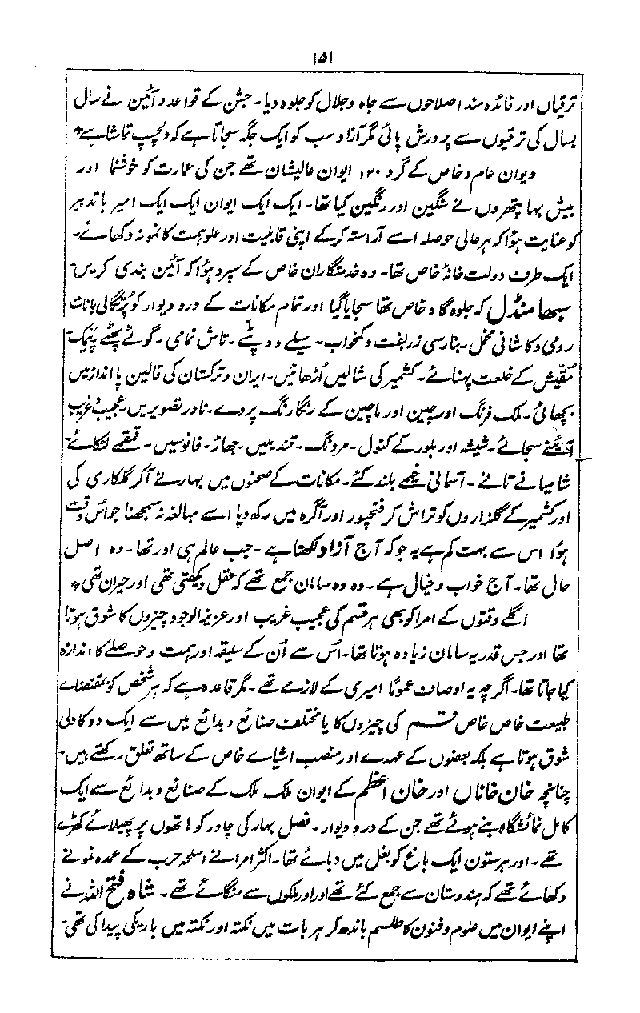 ۱۵۱
ترقیاں اور فائدہ مند اصلاحوں سے جاہ و جلال کو جلوہ دیا۔ جشن کے قواعد و آئین نے سال
بسال کی ترقیوں سے پرورش پائی مگر انہ و سب کو ایک جگہ سجاتا ہے کہ دلچسپ تماشا ہے *
دیوان عام و خاص کے گرد ۱۲۰ ایوان عالیشان تھے جن کی عمارت کو خوشنما اور
بیش بہا پتھروں نے سنگین اور رنگین کیا تھا۔ ایک ایک ایوان ایک ایک امیر باتدبیر
کو عنایت ہؤا کہ ہر عالی حوصلہ اسے آراستہ کرکے اپنی قابلیت اور علو ہمت کا نمونہ دکھائے۔
ایک طرف دولت خانۂ خاص تھا۔ وہ خدمتگاران خاص کے سپرد ہؤا کہ آئین بندی کریں۔
سبھا منڈل کہ جلوہ گاہ خاص تھا سجایا گیا اور تمام مکانات کے در و دیوار کو پرتگالی بانات
رومی و کاشانی مخمل۔ بنارسی زربفت و کمخواب۔ سیلے دوپٹے۔ تاش تمامی۔ گوٹے پٹھے پیمک
مقیش کے خلعت پہنائے۔ کشمیر کی شالیں اڑھائیں۔ ایران و ترکستان کی قالین پا انداز میں
بچھائی۔ ملک فرنگ اور چین اور ماچین کے رنگا رنگ پردے۔ نادر تصویریں۔ عجیب غریب
آئینے سجائے۔ شیشہ اور بلور کے کنول۔ مردنگ۔ قندیلیں۔ جھاڑ۔ فانوسیں۔ قمقمے لٹکائے۔
شامیانے تانے۔ آسمانی خیمے بلند کئے۔ مکانات کے صحنوں میں بہار نے آکر گلکاری کی
اور کشمیر کے گلزاروں کو تراش کر فتحپور اور آگرہ میں رکھ دیا اسے مبالغہ نہ سمجھنا جو اس وقت
ہؤا اس سے بہت کم ہے یہ جو کہ آج آزاد لکھتا ہے۔ جب عالم ہی اور تھا۔ وہ اصل
حال تھا۔ آج خواب و خیال ہے۔ وہ وہ سامان جمع تھے کہ عقل دیکھتی تھی اور حیران تھی *
اگلے وقتوں کے امرا کو بھی ہر قسم کی عجیب غریب اور عزیز الوجود چیزوں کا شوق ہوتا
تھا اور جس قدر یہ سامان زیادہ ہوتا تھا۔ اُس سے اُن کے سلیقہ اور ہمت و حوصلے کا اندازہ
کیا جاتا تھا۔ اگرچہ یہ اوصاف عموماً امیری کے لازمے تھے۔ مگر قاعدہ ہے کہ ہر شخص کو بمقتضائے
طبیعت خاص خاص قسم کی چیزوں کا یا مختلف صنائع و بدائع میں سے ایک دو کا دلی
شوق ہوتا ہے بلکہ بعضوں کے عہدے اور منصب اشیائے خاص کے ساتھ تعلق رکھتے ہیں۔
چنانچہ خان خاناں اور خان اعظم کے ایوان ملک ملک کے صنائع و بدائع سے ایک
کامل نمائشگاہ بنے ہوئے تھے جن کے در و دیوار۔ فصل بہار کی چادر کو ہاتھوں پر پھیلائے کھڑے
تھے۔ اور ہر ستون ایک باغ کو بغل میں دبائے تھا۔ اکثر امرا نے اسلحہ حرب کے عمدہ نمونے
دکھائے تھے کہ ہندوستان سے جمع کئے تھے اور اور ملکوں سے منگائے تھے۔ شاہ فتح اللہ نے
اپنے ایوان میں علوم و فنون کا طلسم باندھ کر ہر بات میں نکتہ اور نکتہ میں باریکی پیدا کی تھی۔